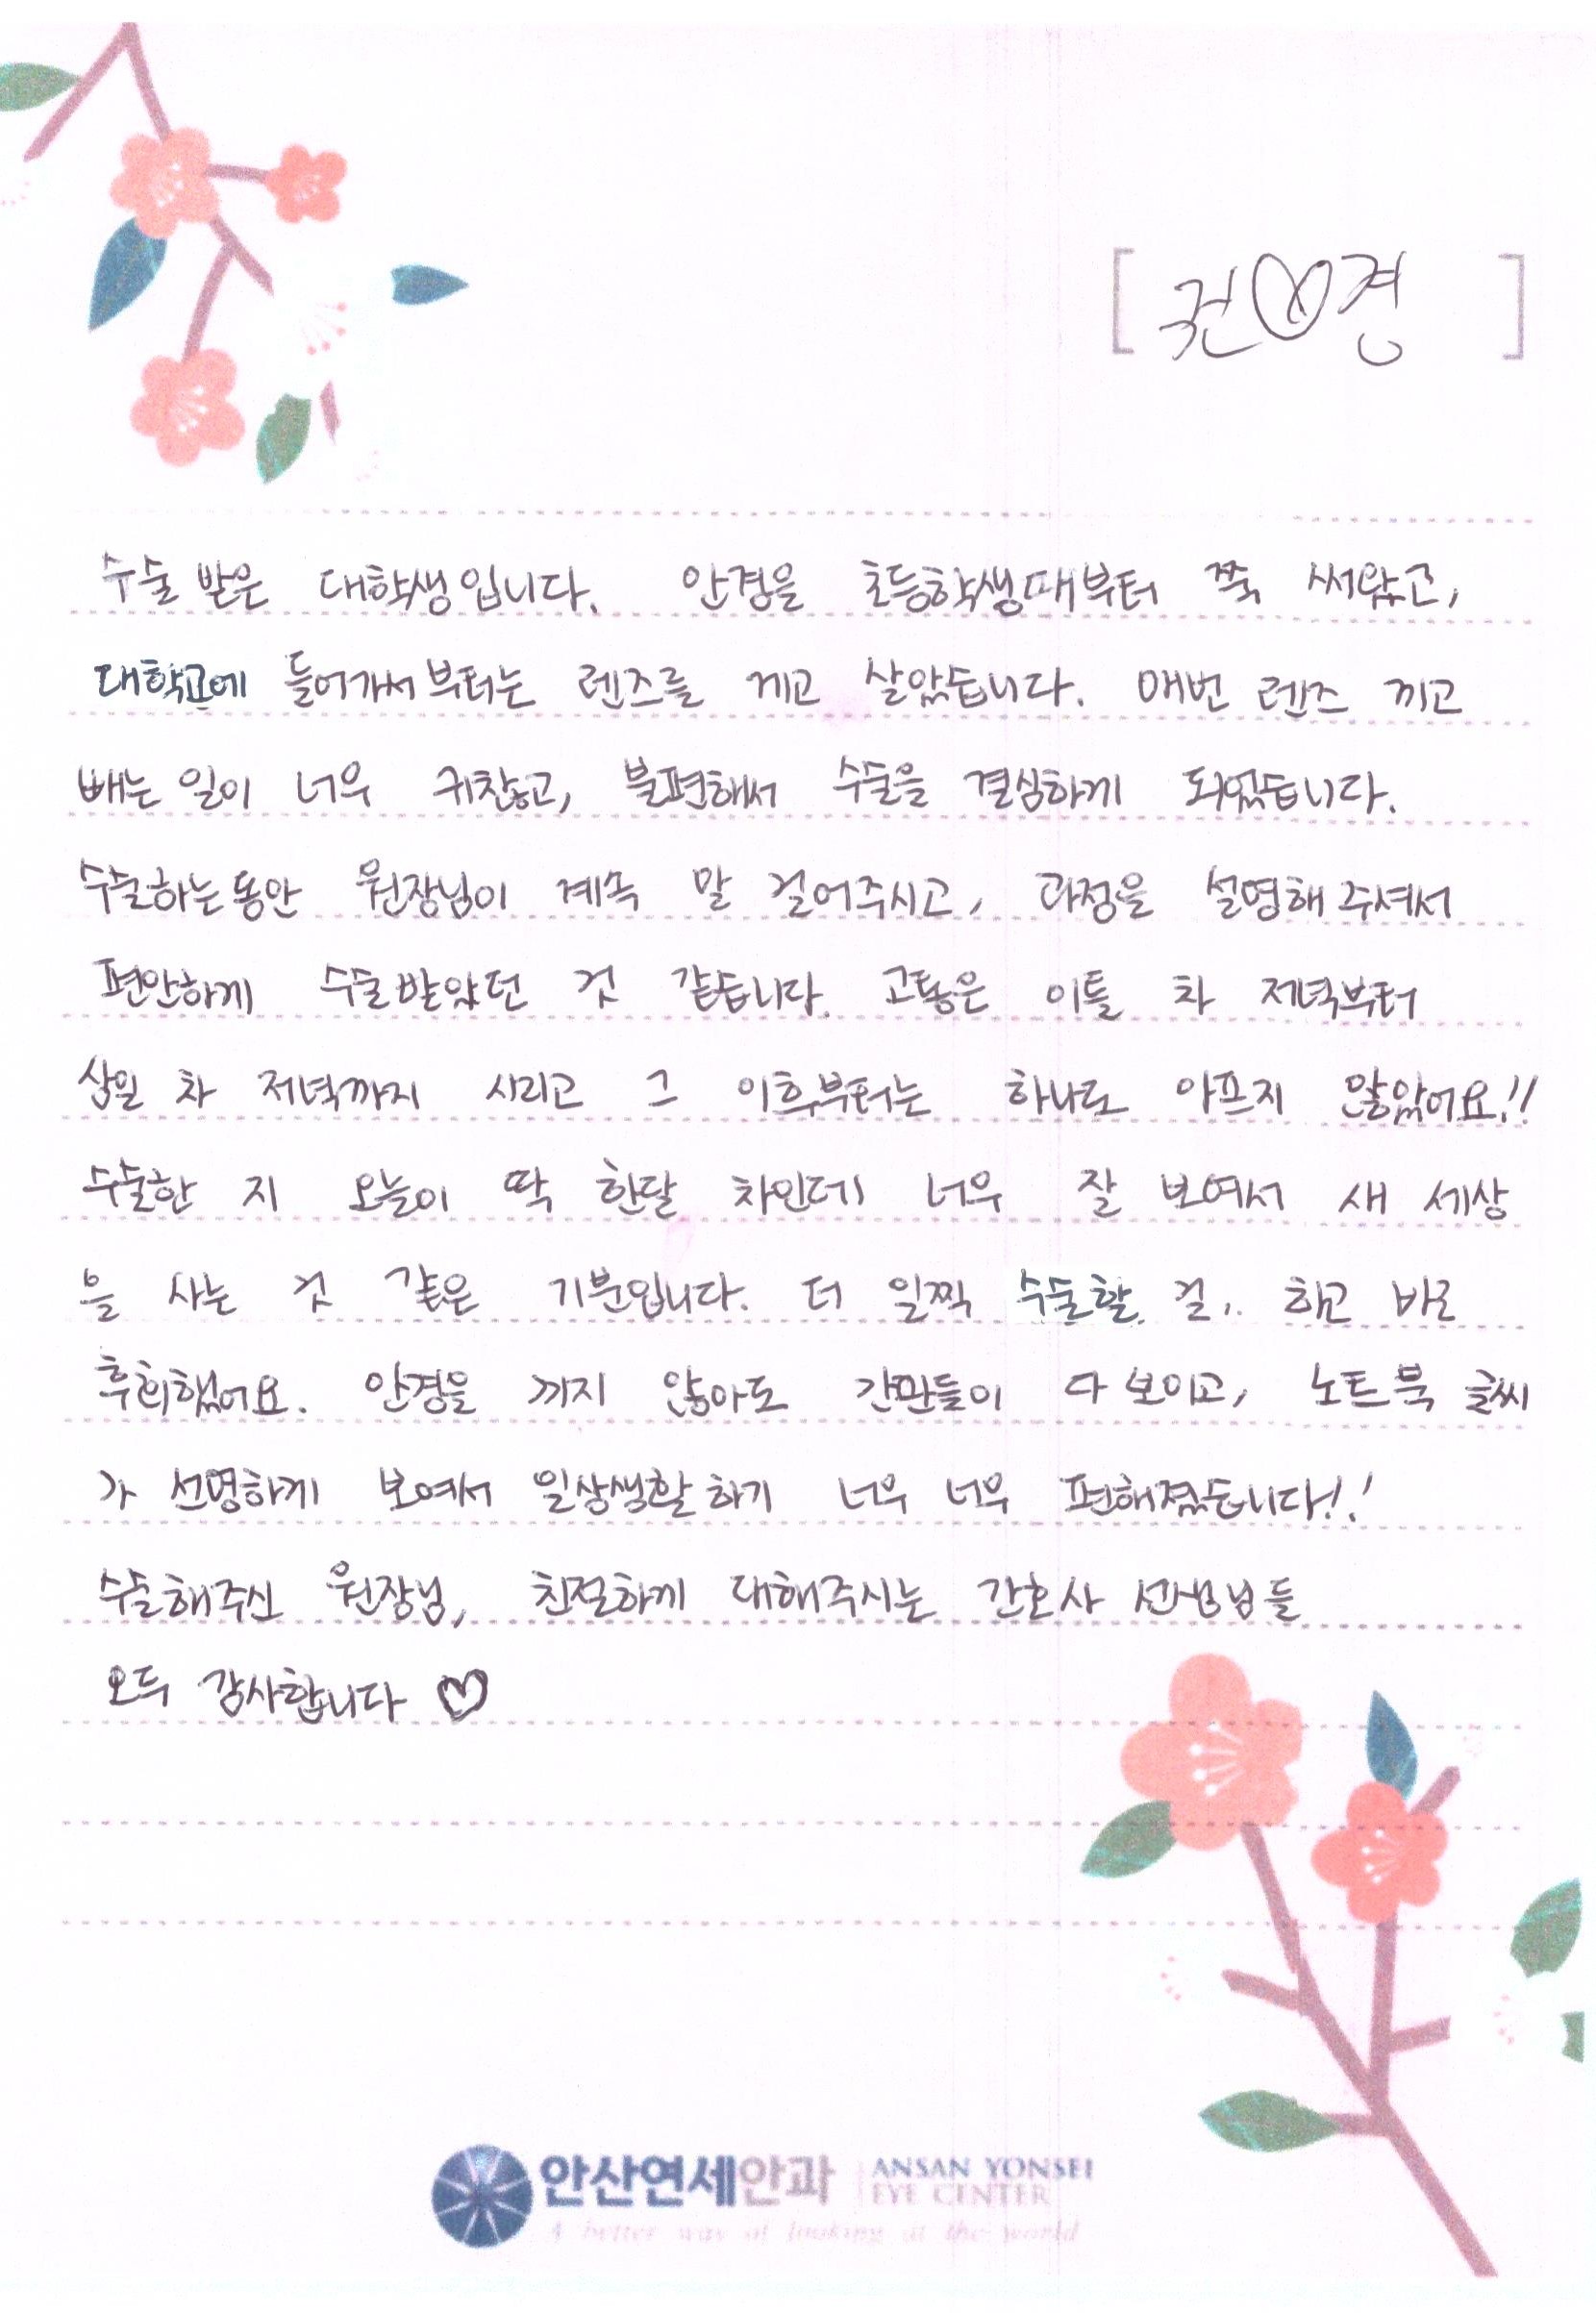 [ 권♡경 ]
수술 받은 대학생입니다. 안경을 초등학생때부터 쭉 써왔고,
대학교에 들어가서부터는 렌즈를 끼고 살았습니다. 매번 렌즈 끼고
빼는 일이 너무 귀찮고, 불편해서 수술을 결심하게 되었습니다.
수술하는동안 원장님이 계속 말 걸어주시고, 과정을 설명해 주셔서
편안하게 수술받았던 것 같습니다. 고통은 이틀 차 저녁부터
삼일 차 저녁까지 시리고 그 이후부터는 하나도 아프지 않았어요!!
수술한 지 오늘이 딱 한달 차인데 너무 잘 보여서 새 세상
을 사는 것 같은 기분입니다. 더 일찍 수술할 걸,. 하고 바로
후회했어요. 안경을 끼지 않아도 간판들이 다 보이고, 노트북 글씨
가 선명하게 보여서 일상생활하기 너무 너무 편해졌습니다!!
수술해주신 원장님, 친절하게 대해주시는 간호사 선생님들
모두 감사합니다 ♡
안산연세안과 ANSAN YONSEI
EYE CENTER
A better way of looking at the world